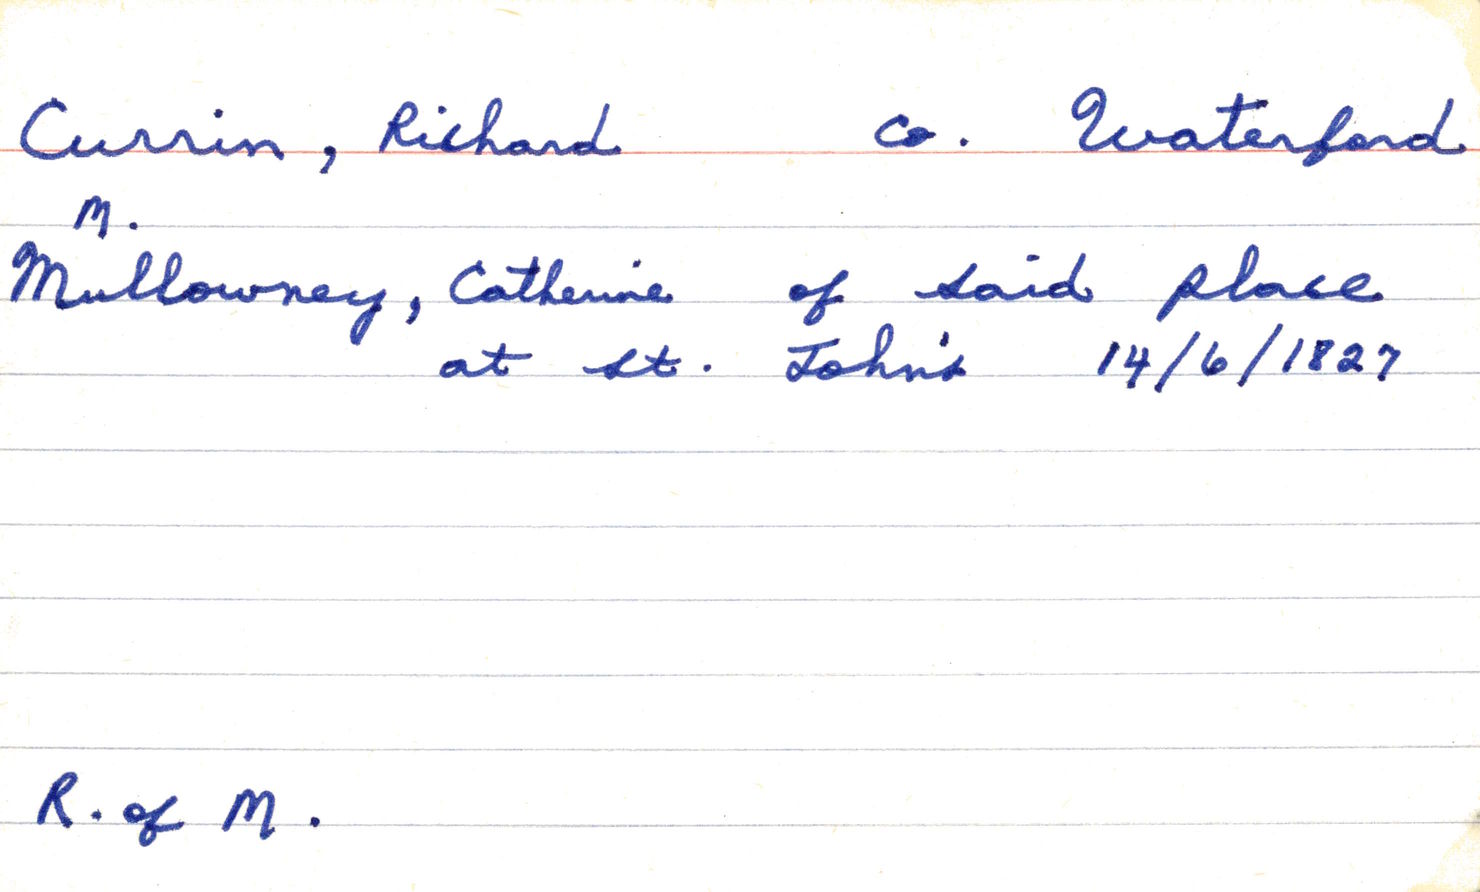 Currin, Richard co. Waterford
m.
Mullowney, Catherine of said place
at st. John's 14/6/1827
R. of M.